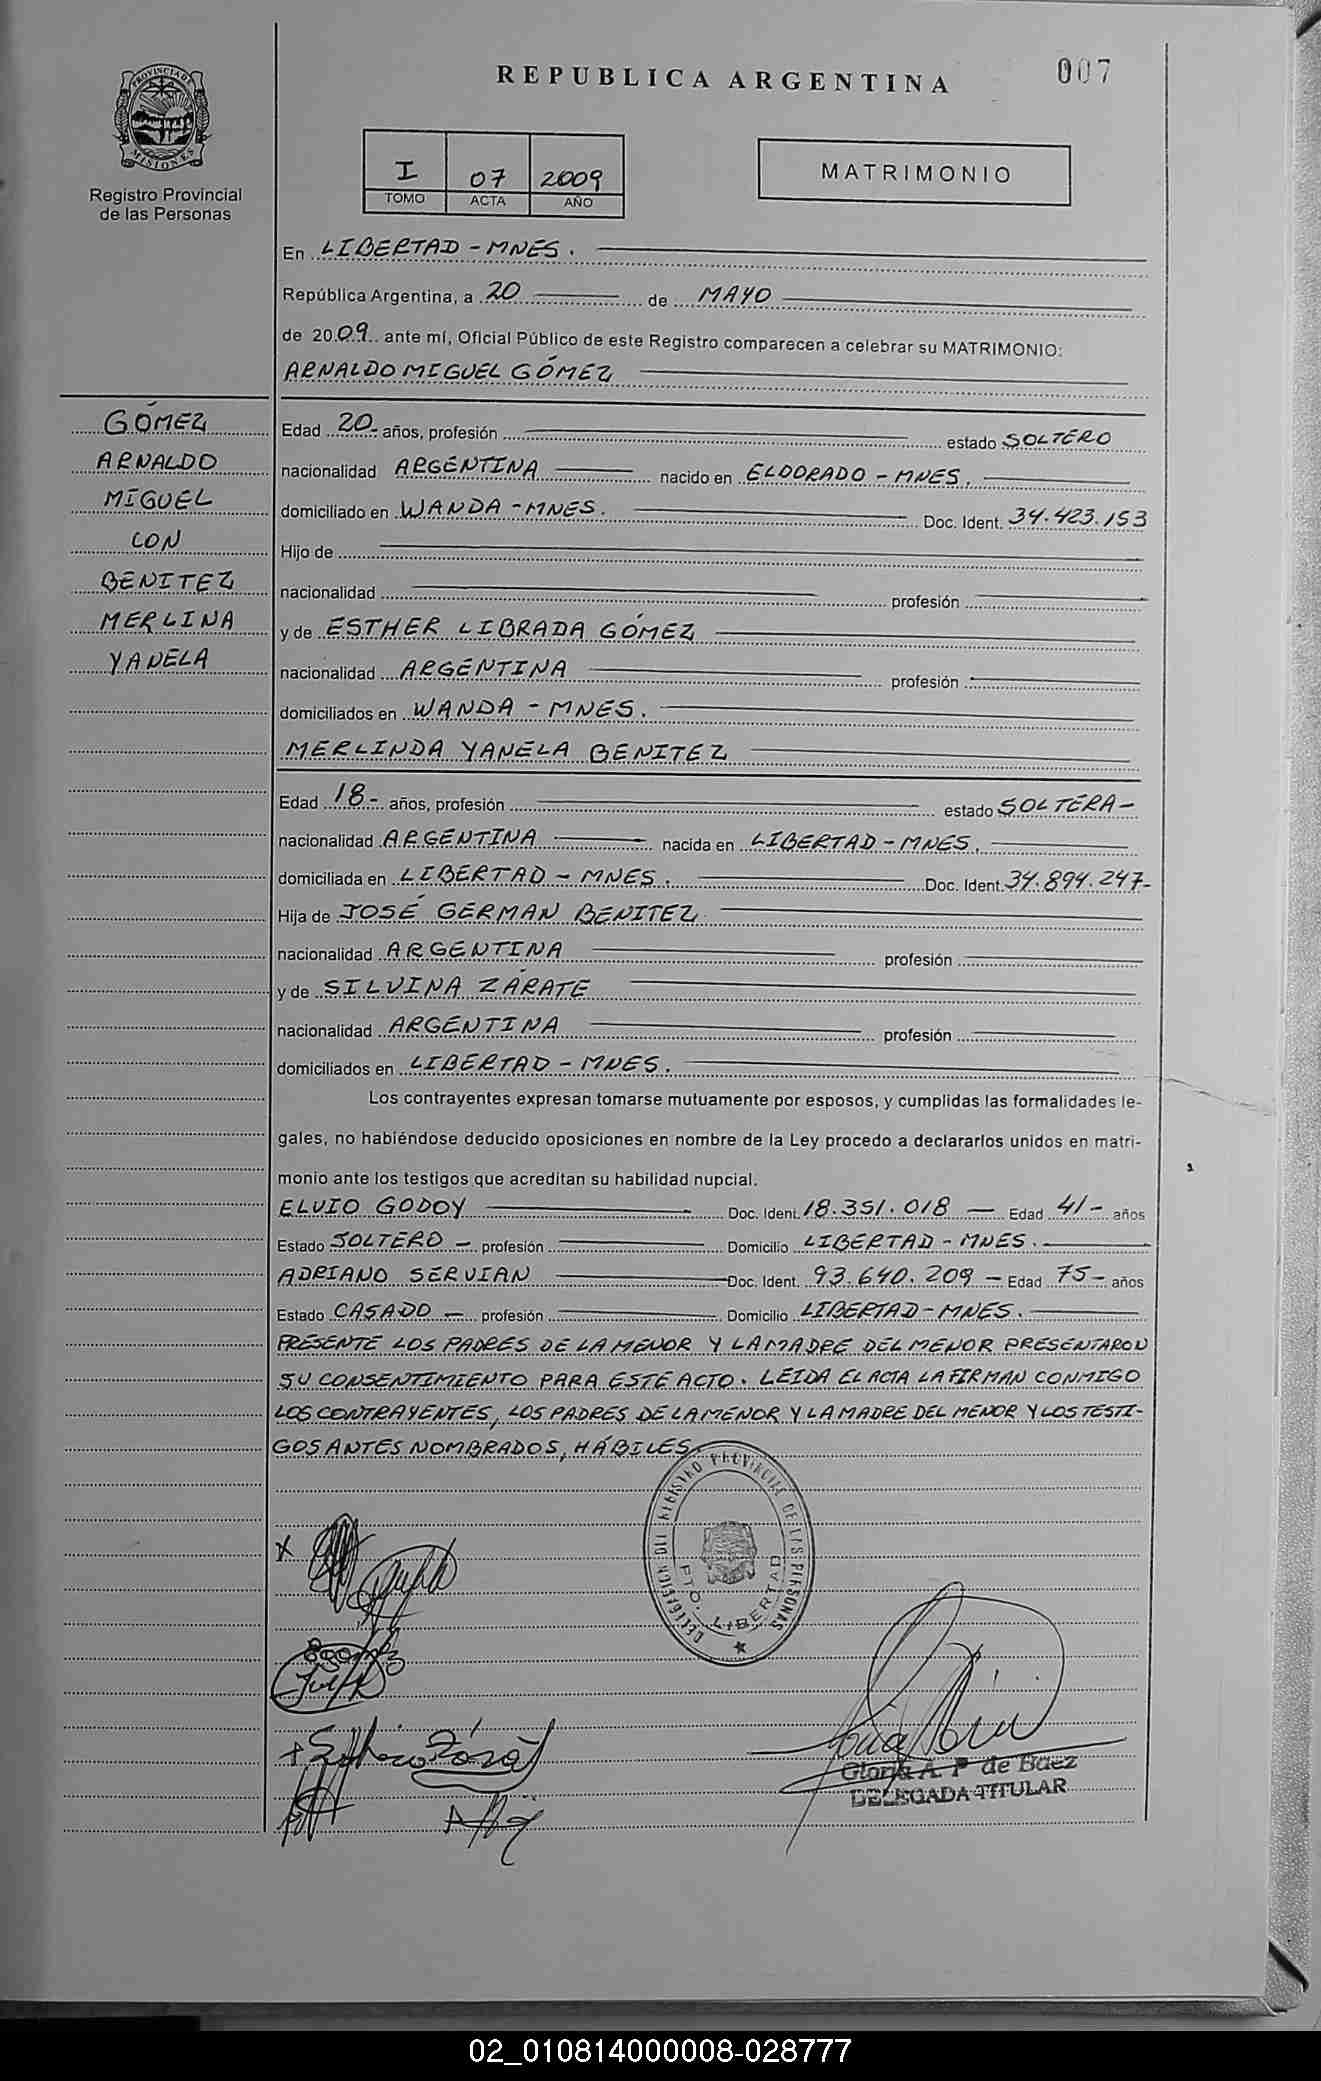 REPUBLICA ARGENTINA
007
PROVINCIA DE
MISIONES
Registro Provincial
de las Personas
I 07 2009
TOMO ACTA AÑO
MATRIMONIO
En LIBERTAD - MNES.
República Argentina, a 20 de MAYO
de 2009 ante mí, Oficial Público de este Registro comparecen a celebrar su MATRIMONIO:
ARNALDO MIGUEL GÓMEZ
GÓMEZ
ARNALDO
MIGUEL
CON
BENITEZ
MERLINA
YANELA
Edad 20- años, profesión estado SOLTERO
nacionalidad ARGENTINA nacido en ELDORADO - MNES.
domiciliado en WANDA - MNES. Doc. Ident. 34.423.153
Hijo de
nacionalidad profesión
y de ESTHER LIBRADA GÓMEZ
nacionalidad ARGENTINA profesión
domiciliados en WANDA - MNES.
MERLINDA YANELA BENITEZ
Edad 18- años, profesión estado SOLTERA-
nacionalidad ARGENTINA nacida en LIBERTAD - MNES.
domiciliada en LIBERTAD - MNES. Doc. Ident. 34.894.247-
Hija de JOSÉ GERMAN BENITEZ
nacionalidad ARGENTINA profesión
y de SILVINA ZÁRATE
nacionalidad ARGENTINA profesión
domiciliados en LIBERTAD - MNES.
Los contrayentes expresan tomarse mutuamente por esposos, y cumplidas las formalidades le-
gales, no habiéndose deducido oposiciones en nombre de la Ley procedo a declararlos unidos en matri-
monio ante los testigos que acreditan su habilidad nupcial.
ELVIO GODOY Doc. Ident. 18.351.018 - Edad 41- años
Estado SOLTERO - profesión Domicilio LIBERTAD - MNES.
ADRIANO SERVIAN Doc. Ident. 93.640.209 - Edad 75- años
Estado CASADO - profesión Domicilio LIBERTAD - MNES.
PRESENTE LOS PADRES DE LA MENOR Y LA MADRE DEL MENOR PRESENTARON
SU CONSENTIMIENTO PARA ESTE ACTO. LEIDA EL ACTA LA FIRMAN CONMIGO
LOS CONTRAYENTES, LOS PADRES DE LA MENOR Y LA MADRE DEL MENOR Y LOS TESTI-
GOS ANTES NOMBRADOS, HÁBILES.
DELEGACION DEL REGISTRO PROVINCIAL DE LAS PERSONAS
PTO. LIBERTAD
Gloria A. P de Baez
DELEGADA TITULAR
02_010814000008-028777